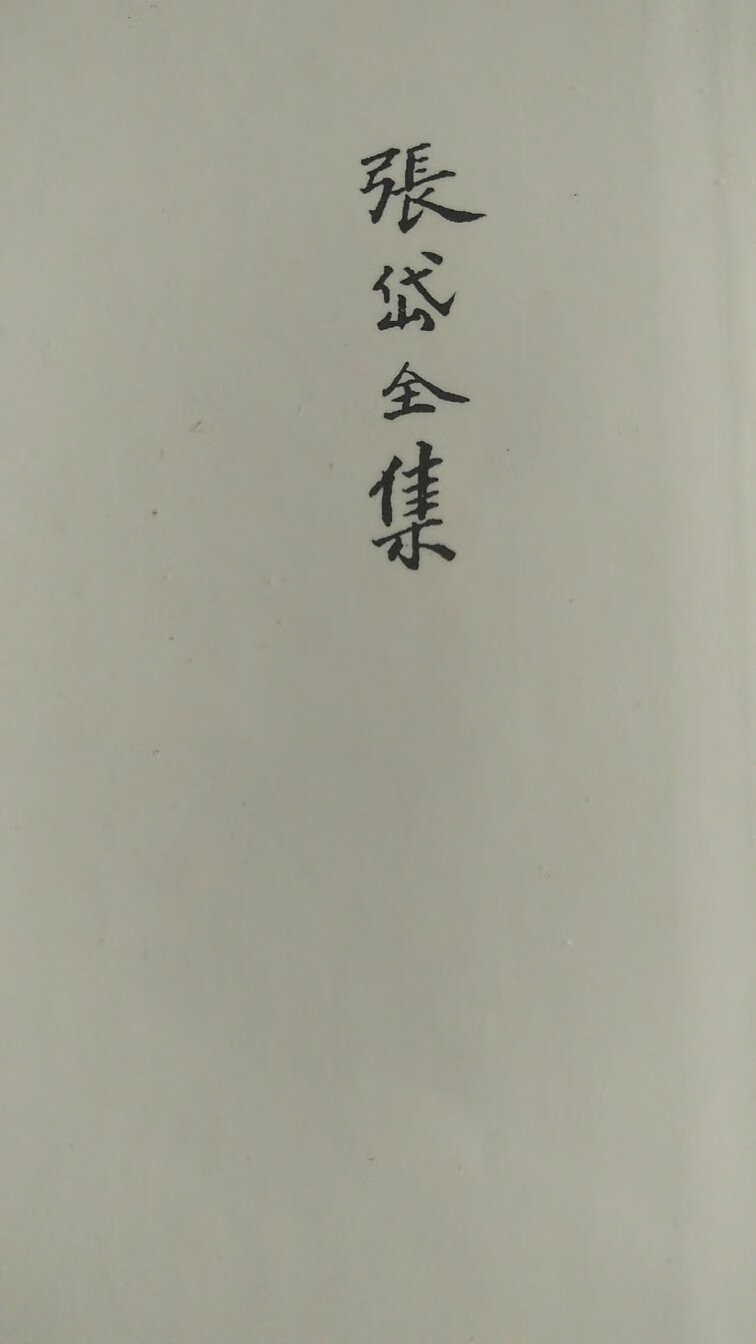 張岱全集